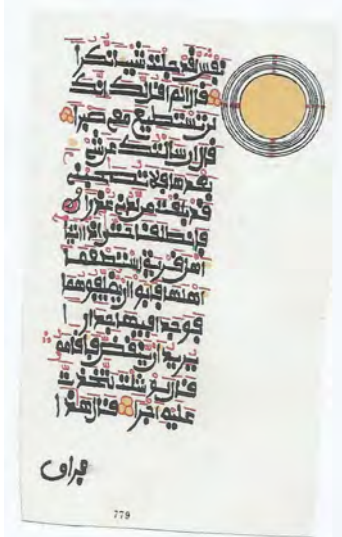 نفس لقد جئت شيئا نكرا
قال الم اقل لك انك
لن تستطيع معي صبرا
قال ان سالتك عن شيء
بعدها فلا تصحبني
قد بلغت من لدني عذرا
فانطلقا حتى اذا اتيا
اهل قرية استطعما
اهلها فابوا ان يضيفوهما
فوجدا فيها جدارا
يريد ان ينقض فاقامه
قال لو شئت لتخذت
عليه اجرا قال هذا
فراق
779